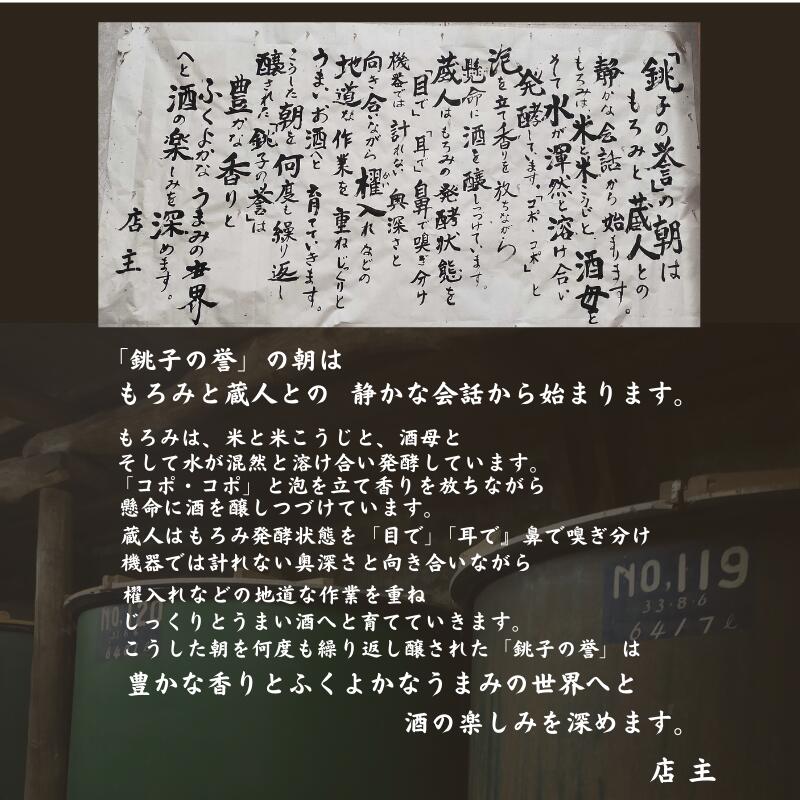 「銚子の誉」の朝は
もろみと蔵人との
静かな会話から始まります。
もろみは、米と米こうじと、酒母と
そして水が渾然と溶け合い
発酵しています。「コポ・コポ」と
泡を立て香りを放ちながら
懸命に酒を醸しつづけています。
蔵人はもろみの発酵状態を
「目で」「耳で」鼻で嗅ぎ分け
機器では計れない奥深さと
向き合いながら櫂入れなどの
かい
地道な作業を重ねじっくりと
うまいお酒へと育てていきます。
こうした朝を何度も繰り返し
醸された「銚子の誉」は
豊かな香りと
ふくよかなうまみの世界
へと酒の楽しみを深めます。
店主
「銚子の誉」の朝は
もろみと蔵人との 静かな会話から始まります。
もろみは、米と米こうじと、酒母と
そして水が混然と溶け合い発酵しています。
「コポ・コポ」と泡を立て香りを放ちながら
懸命に酒を醸しつづけています。
蔵人はもろみ発酵状態を「目で」「耳で』鼻で嗅ぎ分け
機器では計れない奥深さと向き合いながら
櫂入れなどの地道な作業を重ね
じっくりとうまい酒へと育てていきます。
こうした朝を何度も繰り返し醸された「銚子の誉」は
豊かな香りとふくよかなうまみの世界へと
酒の楽しみを深めます。
店主
NO,119
33.8.6
6417ℓ
NO,120